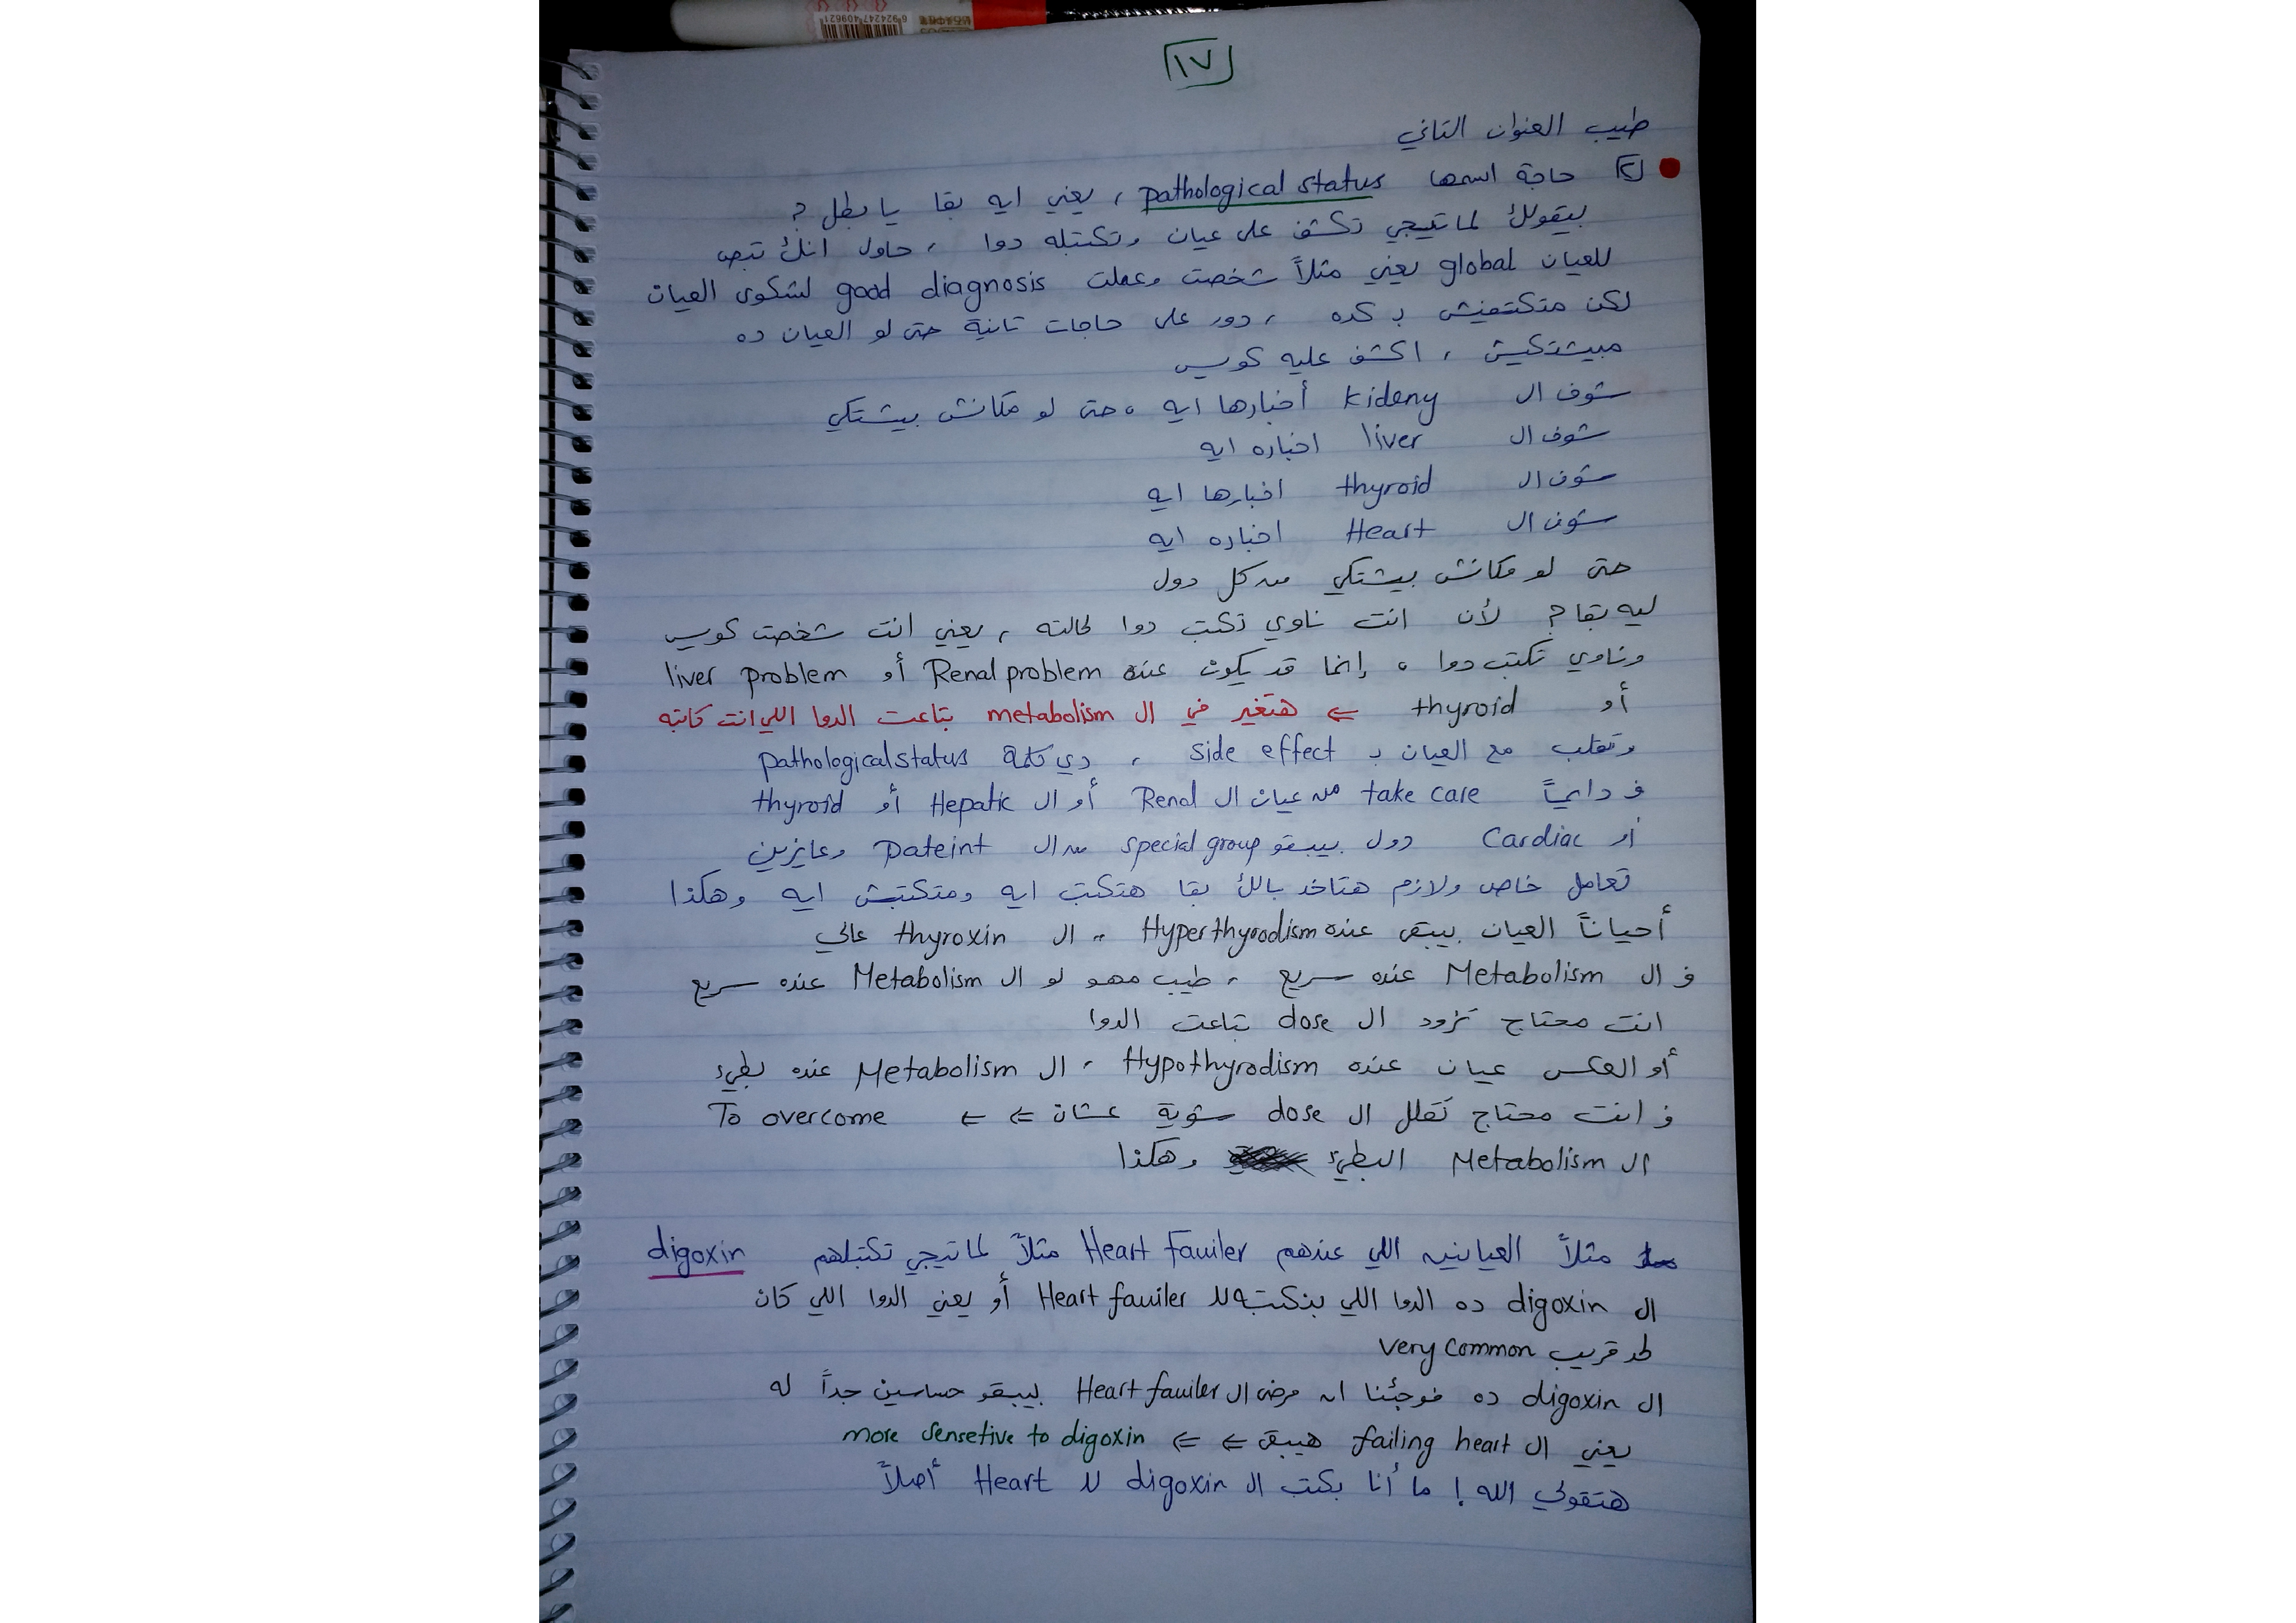 ١٧
طيب العنوان التاني
٢ حاجة اسمها pathological status ، يعني ايه بقا يا بطل ؟
بيقولك لما تيجي تكشف على عيان وتكتبله دوا ، حاول انك تبص
للعيان global يعني مثلاً شخصت وعملت good diagnosis لشكوى العيان
لكن متكتفيش ب كده ، دور على حاجات تانية حتى لو العيان ده
مبيشتكيش ، اكشف عليه كويس
شوف ال kideny أخبارها ايه ، حتى لو مكانش بيشتكي
شوف ال liver اخباره ايه
شوف ال thyroid اخبارها ايه
شوف ال Heart اخباره ايه
حتى لو مكانش بيشتكي من كل دول
ليه بقا ؟ لأن انت ناوي تكتب دوا لحالته ، يعني انت شخصت كويس
وناوي تكتب دوا ، إنما قد يكون عنده Renal problem أو liver problem
أو thyroid ⇐ هتغير في ال metabolism بتاعت الدوا اللي انت كاتبه
وتقلب مع العيان ب side effect ، دي كلمة pathological status
ف دايماً take care من عيان ال Renal أو ال Hepatic أو thyroid
أو Cardiac دول بيبقو special group من ال Pateint وعايزين
تعامل خاص ولازم هتاخد بالك بقا هتكتب ايه ومتكتبش ايه وهكذا
أحياناً العيان بيبقى عنده Hyperthyrodism ، ال thyroxin عالي
ف ال Metabolism عنده سريع ، طيب مهو لو ال Metabolism عنده سريع
انت محتاج تزود ال dose بتاعت الدوا
أو العكس عيان عنده Hypothyrodism ، ال Metabolism عنده بطيء
ف انت محتاج تقلل ال dose شوية عشان ⇐ ⇐ To overcome
ال Metabolism البطيء وهكذا
مثلاً العيانين اللي عندهم Heart Fauiler مثلاً لما تيجي تكتبلهم digoxin
ال digoxin ده الدوا اللي بنكتبه لل Heart fauiler أو يعني الدوا اللي كان
لحد قريب very common
ال digoxin ده فوجئنا ان مرضى ال Heart fauiler بيبقو حساسين جداً له
يعني ال failing heart هيبقى ⇐ ⇐ more sensetive to digoxin
هتقولي الله ! ما أنا بكتب ال digoxin لل Heart أصلاً